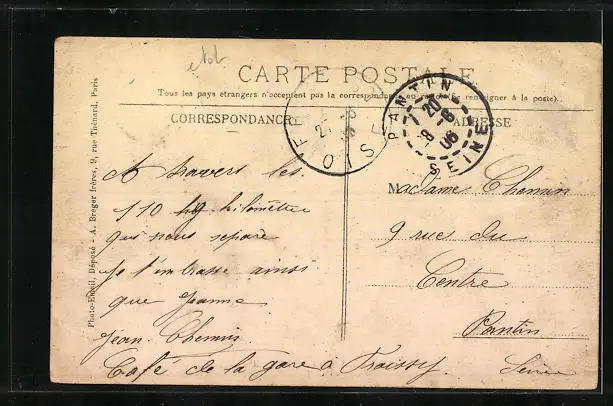 CARTE POSTALE
Tous les pays étrangers n'acceptent pas la correspondance au recto (Se renseigner à la poste).
CORRESPONDANCE
ADRESSE
PANTIN
7 20
8-6
06
SEINE
OISE
A travers les
110 kilomètre
qui nous sépare
Je t'embrasse ainsi
que Jeanne
Jean Chemin
Café de la gare à
Madame Chemin
9 rue du
Centre
Pantin
Seine
Photo-Email, Déposé - A. Breger frères, 9, rue Thénard, Paris